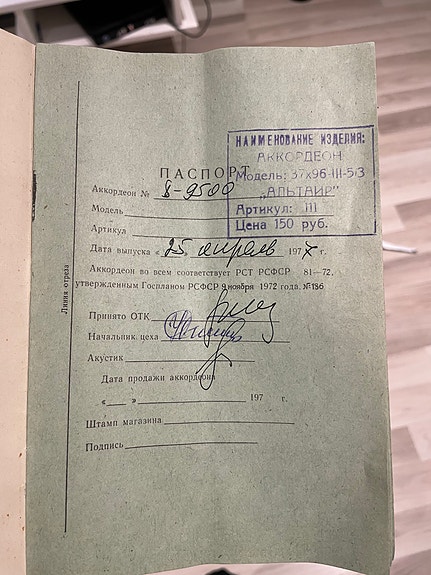 НАИМЕНОВАНИЕ ИЗДЕЛИЯ:
АККОРДЕОН
Модель: 37х96-III-5/3
„АЛЬТАИР"
Артикул: 111
Цена 150 руб.
ПАСПОРТ
Аккордеон № 8-9500
Модель
Артикул
Дата выпуска « 25 » апрель 197 г.
Аккордеон во всем соответствует РСТ РСФСР 81—72,
утвержденным Госпланом РСФСР 9 ноября 1972 года. №186
Принято ОТК
Начальник цеха
Акустик
Дата продажи аккордеона
« » 197 г.
Штамп магазина
Подпись
Линия отреза